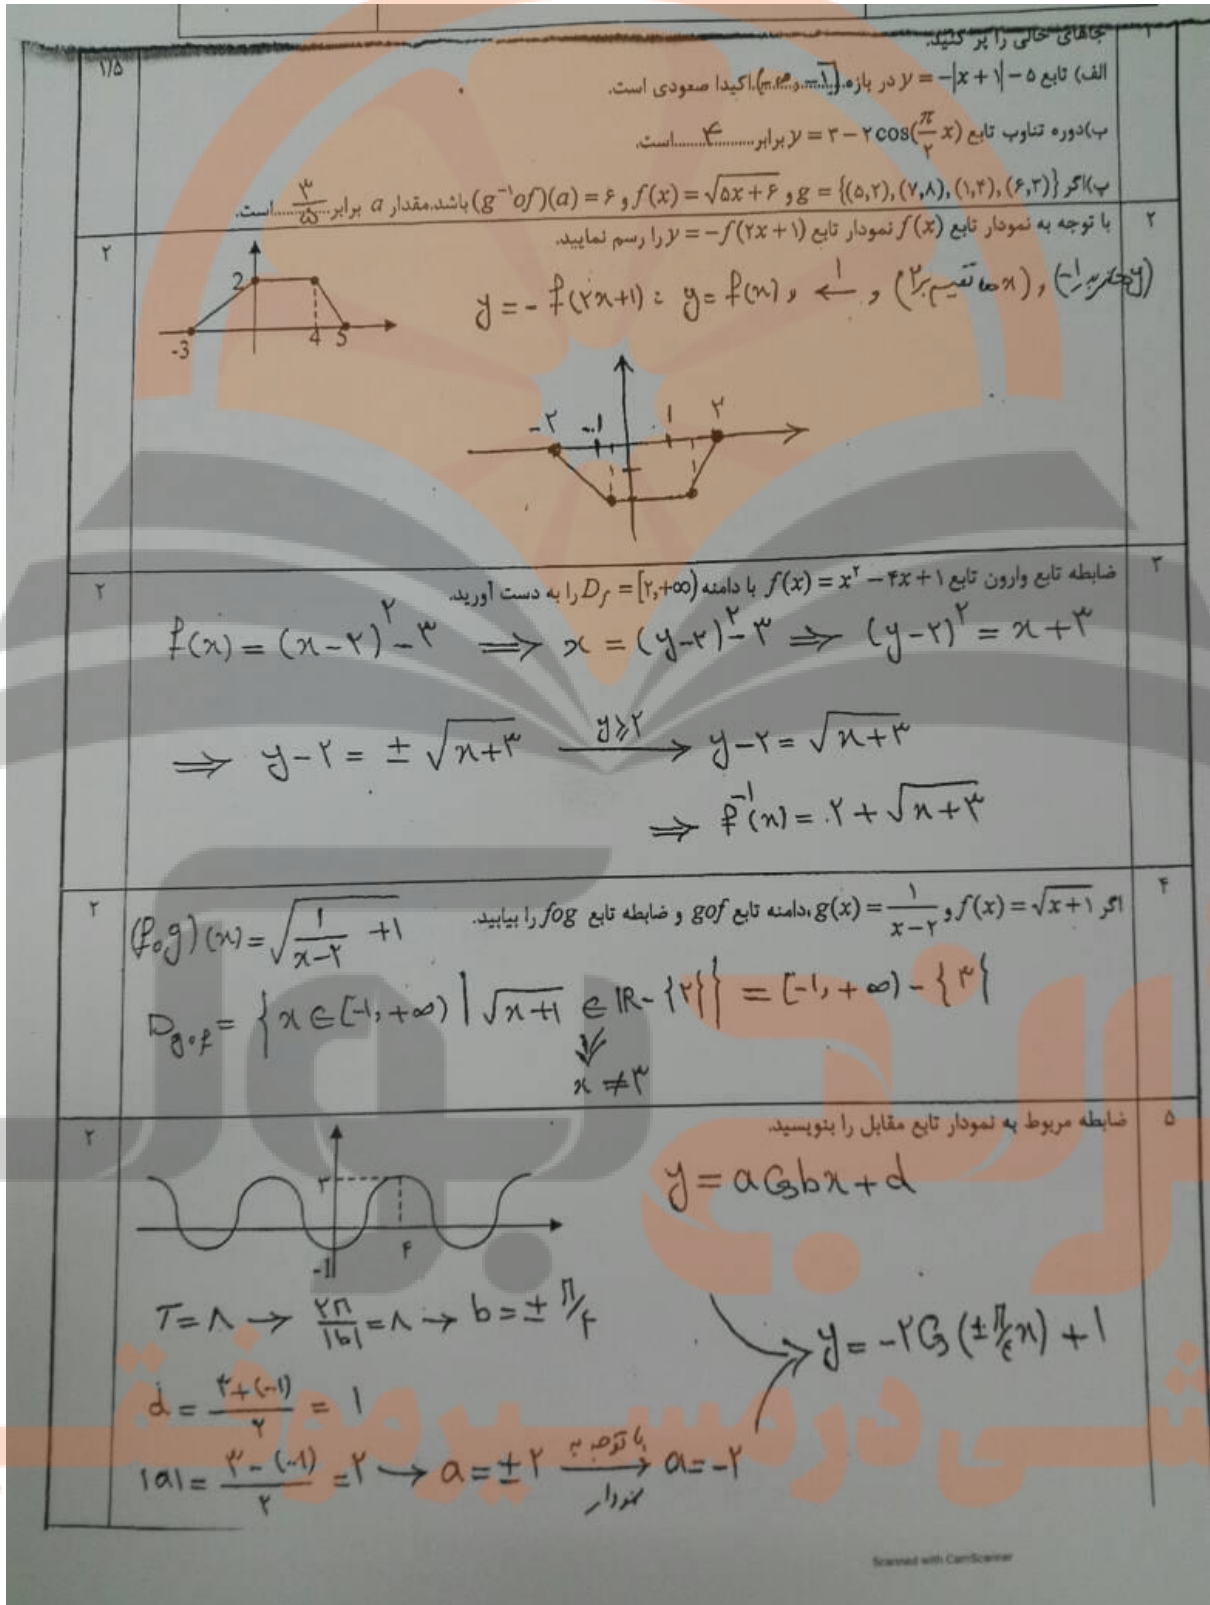 ۱ جاهای خالی را پر کنید.
۱/۵
الف) تابع y = -|x + ۱| - ۵ در بازه (-∞, -۱] اکیدا صعودی است.
ب)دوره تناوب تابع y = ۳ - ۲cos(π/۲ x) برابر ۴ است.
پ)اگر g = {(۵,۲),(۷,۸),(۱,۴),(۶,۳)} و f(x) = √(۵x + ۶) و (g⁻¹of)(a) = ۶ باشد.مقدار a برابر ۳/۵ است.
۲ با توجه به نمودار تابع f(x) نمودار تابع y = -f(۲x + ۱) را رسم نمایید.
۲
y = - f(۲x+1) : y = f(x) , ←1 , (x ها تقسیم بر ۲) , (y ها ضرب در -1)
2
-3 4 5
-۲ -1 1 ۲
۳ ضابطه تابع وارون تابع f(x) = x² - ۴x + ۱ با دامنه D_f = [۲,+∞) را به دست آورید.
۲
f(x) = (x-۲)² - ۳ ⟹ x = (y-۲)² - ۳ ⟹ (y-۲)² = x + ۳
⟹ y-۲ = ± √(x+۳) —y⩾۲→ y-۲ = √(x+۳)
⟹ f⁻¹(x) = ۲ + √(x+۳)
۴ اگر f(x) = √(x+۱) و g(x) = ۱/(x-۲) ،دامنه تابع gof و ضابطه تابع fog را بیابید.
۲
(fog)(x) = √(1/(x-۲) + 1)
D_gof = {x ∈ [-1, +∞) | √(x+1) ∈ IR - {۲}} = [-1, +∞) - {۳}
x ≠ ۳
۵ ضابطه مربوط به نمودار تابع مقابل را بنویسید.
۲
y = a Cos bx + d
۳
۴
-1
T = ۸ → ۲π/|b| = ۸ → b = ± π/۴
y = -۲ Cos (± π/۴ x) + 1
d = (۳+(-1))/۲ = 1
|a| = (۳-(-1))/۲ = ۲ → a = ± ۲ —با توجه به نمودار→ a = -۲
شی در مسیر موفقـ
Scanned with CamScanner